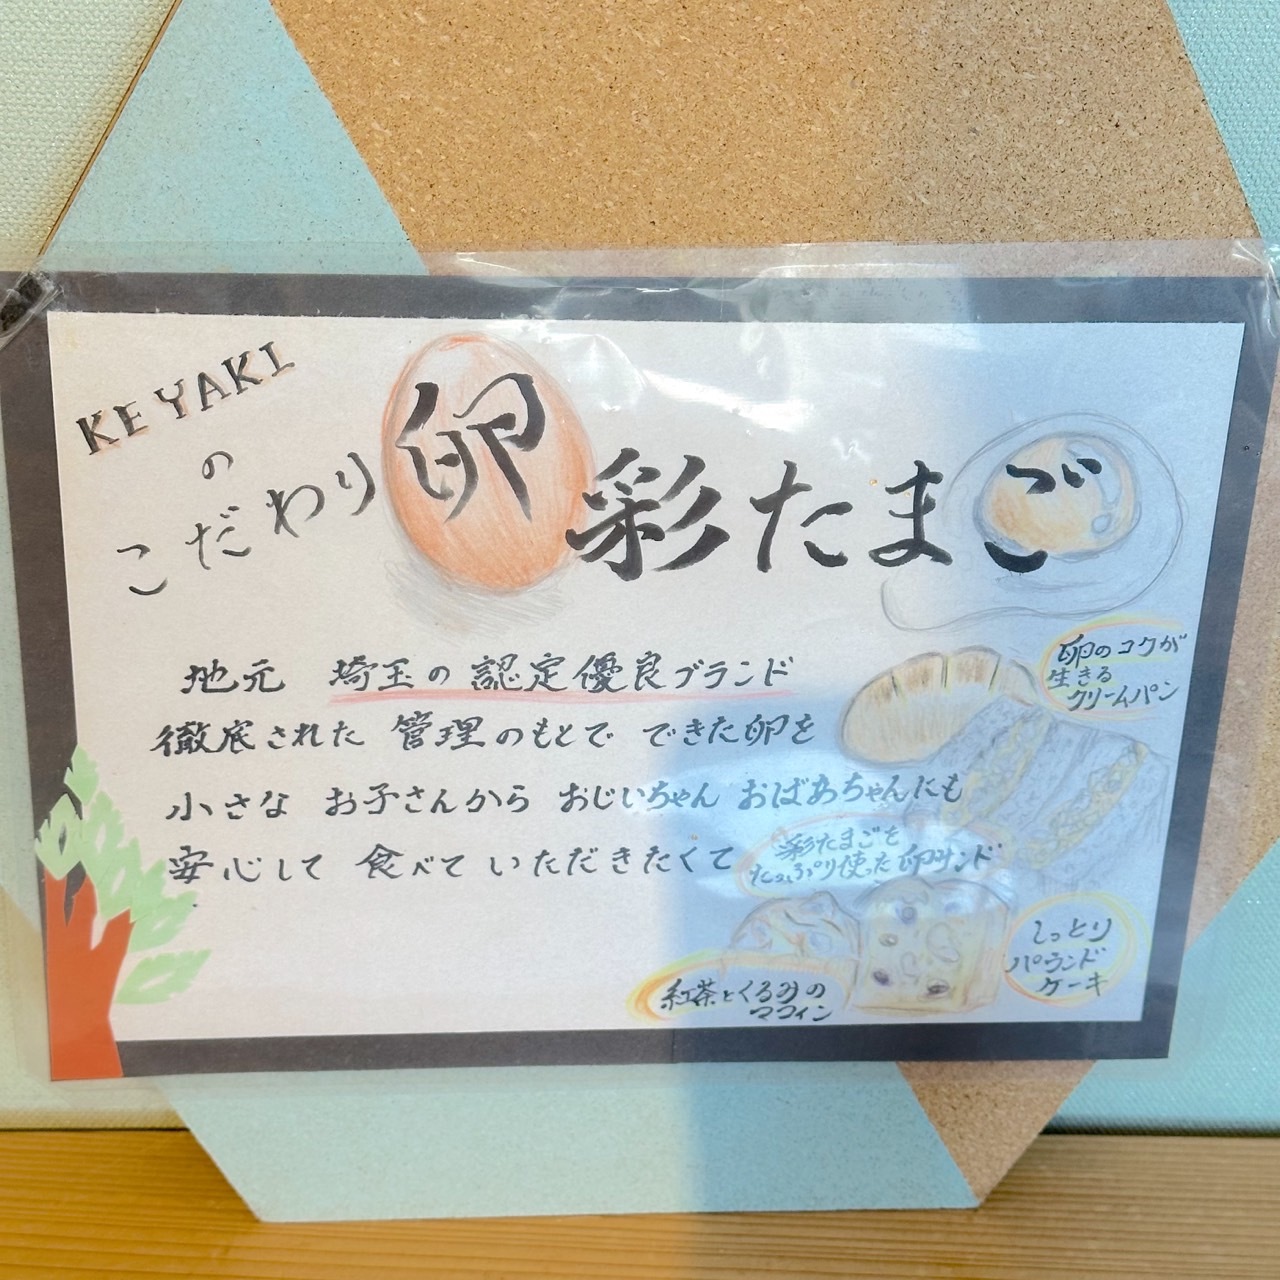 KEYAKI
の
こだわり卵 彩たまご
地元 埼玉の認定優良ブランド
徹底された 管理のもとで できた卵を
小さな お子さんから おじいちゃん おばあちゃんにも
安心して 食べて いただきたくて
卵のコクが
生きる
クリームパン
彩たまごを
たっぷり使った卵サンド
しっとり
パウンド
ケーキ
紅茶とくるみの
マフィン